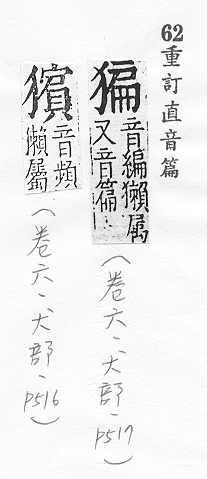 62重訂直音篇
猵音編獺屬又音篇
（卷六、犬部、p517）
獱音頻獺屬
（卷六、犬部、p516）